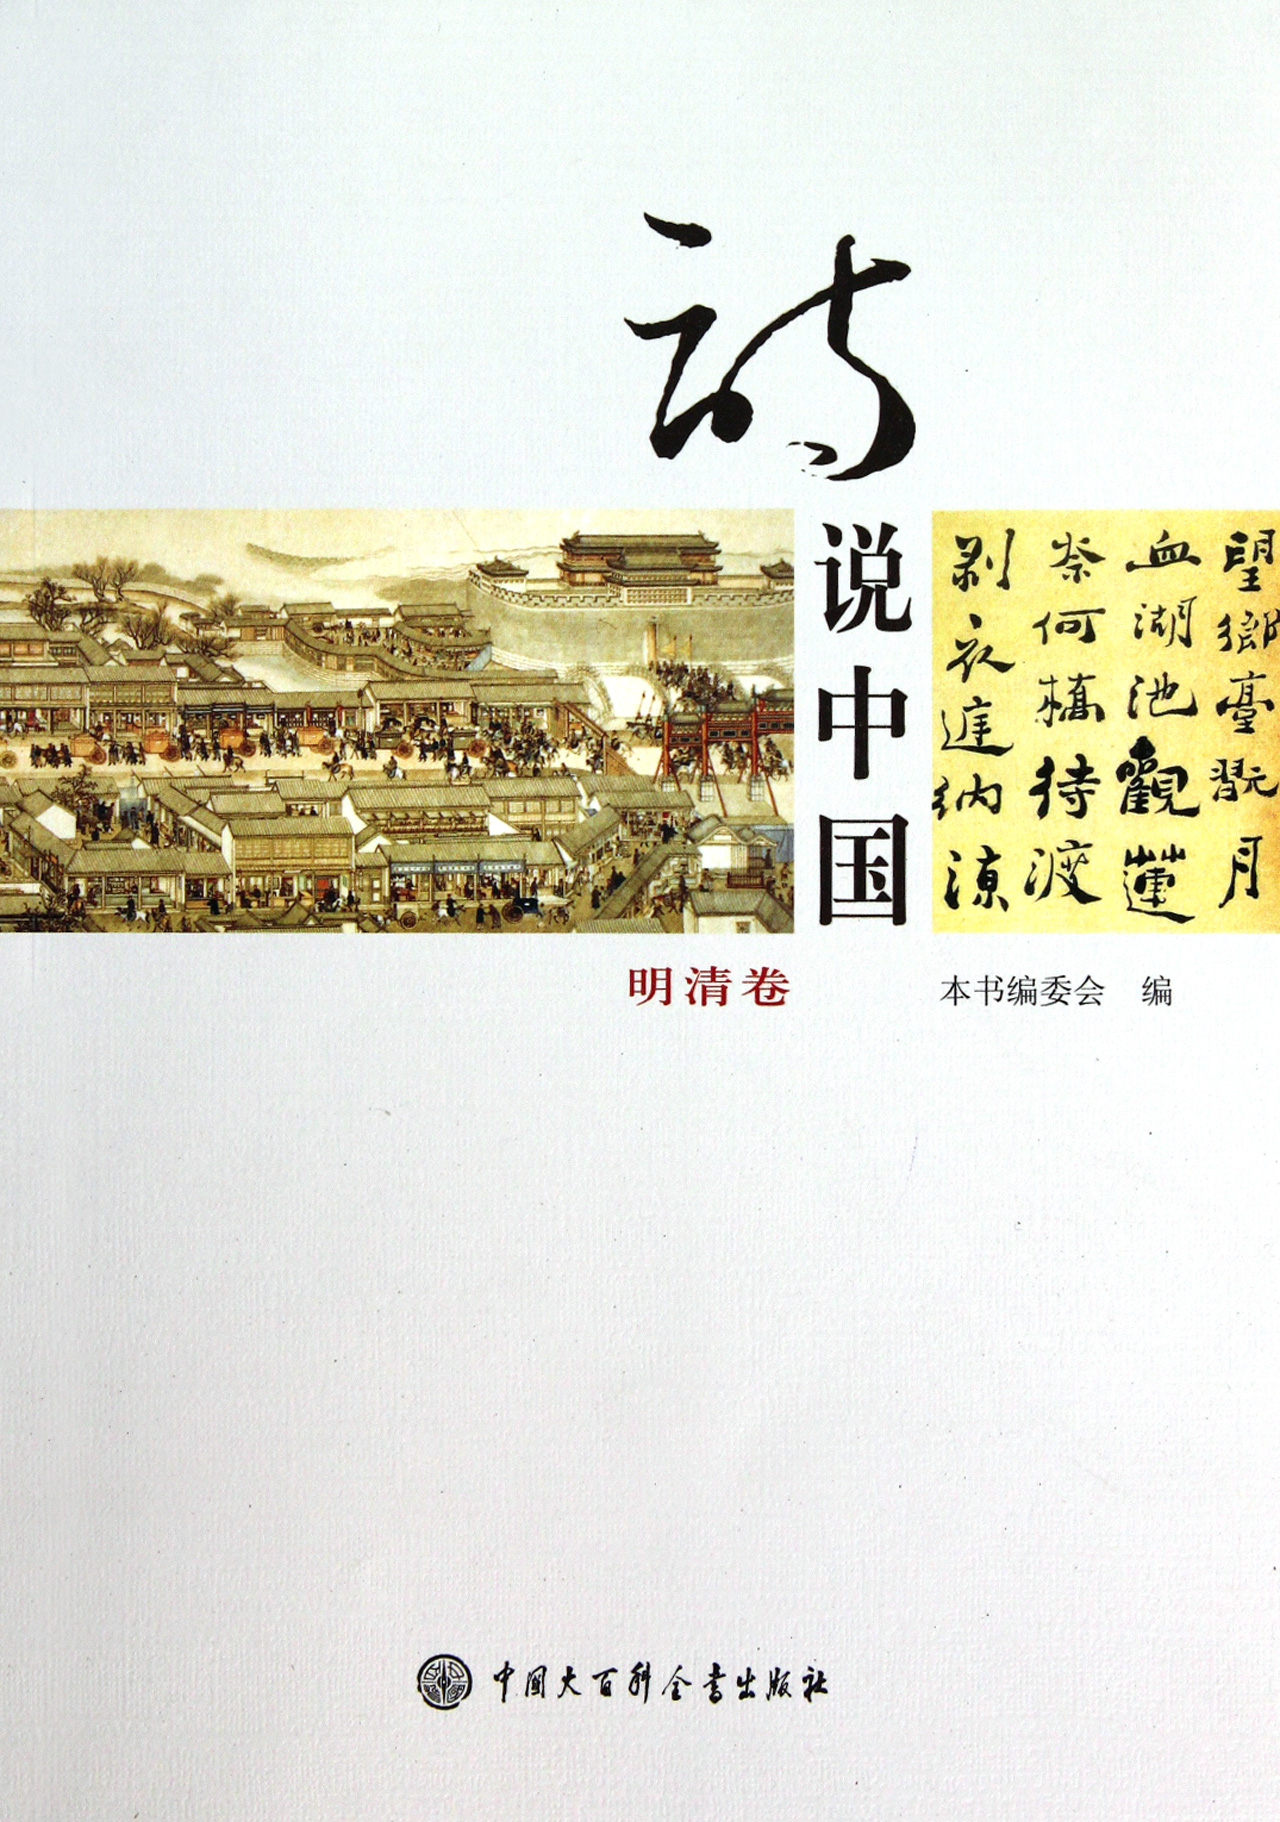 诗
说中国
望鄉臺翫月
血湖池觀蓮
奈何橋待渡
剥衣庭納凉
明清卷
本书编委会 编
中国大百科全书出版社